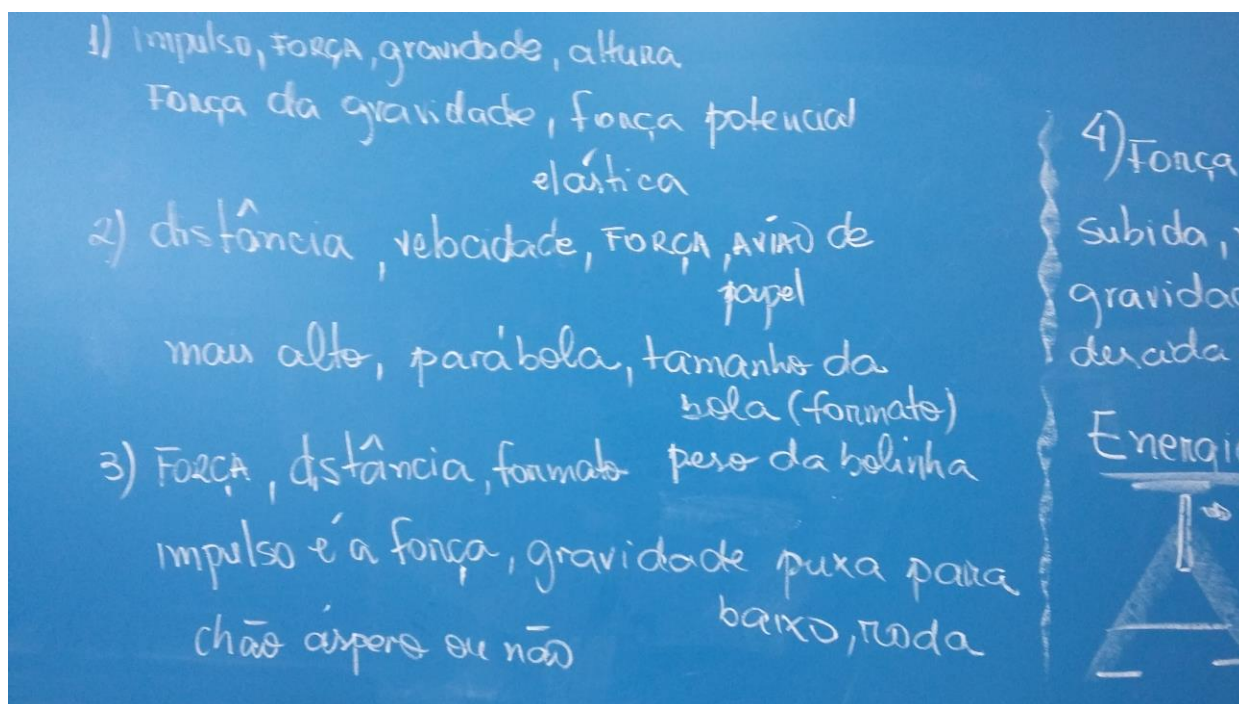 1) impulso, FORÇA, gravidade, altura
Força da gravidade, força potencial
elástica
2) distância, velocidade, FORÇA, AVIÃO de
papel
mais alto, parábola, tamanho da
bola (formato)
3) FORÇA, distância, formato peso da bolinha
impulso é a força, gravidade puxa para
baixo, roda
chão áspero ou não
4) Força
subida,
gravidad
descida
Energi